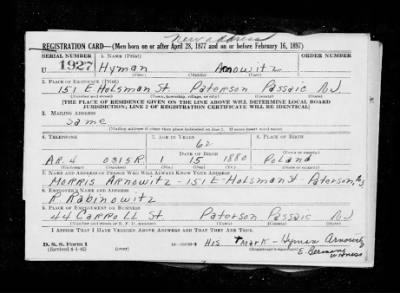 New address
REGISTRATION CARD—(Men born on or after April 28, 1877 and on or before February 16, 1897)
SERIAL NUMBER 1. NAME (Print) ORDER NUMBER
U 1927 Hyman Arnowitz
(First) (Middle) (Last)
2. PLACE OF RESIDENCE (Print)
151 E Holsman St Paterson Passaic NJ
(Number and street) (Town, township, village, or city) (County) (State)
[THE PLACE OF RESIDENCE GIVEN ON THE LINE ABOVE WILL DETERMINE LOCAL BOARD
JURISDICTION; LINE 2 OF REGISTRATION CERTIFICATE WILL BE IDENTICAL]
3. MAILING ADDRESS
Same
(Mailing address if other than place indicated on line 2. If same insert word same)
4. TELEPHONE 5. AGE IN YEARS 6. PLACE OF BIRTH
62
DATE OF BIRTH
AR. 4 0315 R 1 15 1880 Poland
(Exchange) (Number) (Mo.) (Day) (Yr.) (State or country)
7. NAME AND ADDRESS OF PERSON WHO WILL ALWAYS KNOW YOUR ADDRESS
Morris Arnowitz - 151 E Holsman St - Paterson, NJ
8. EMPLOYER'S NAME AND ADDRESS
R Rabinowitz
9. PLACE OF EMPLOYMENT OR BUSINESS
44 Carroll St Paterson Passaic NJ
(Number and street or R. F. D. number) (Town) (County) (State)
I AFFIRM THAT I HAVE VERIFIED ABOVE ANSWERS AND THAT THEY ARE TRUE.
D. S. S. Form 1 His + mark - Hyman Arnowitz
(Revised 4-1-42) witness